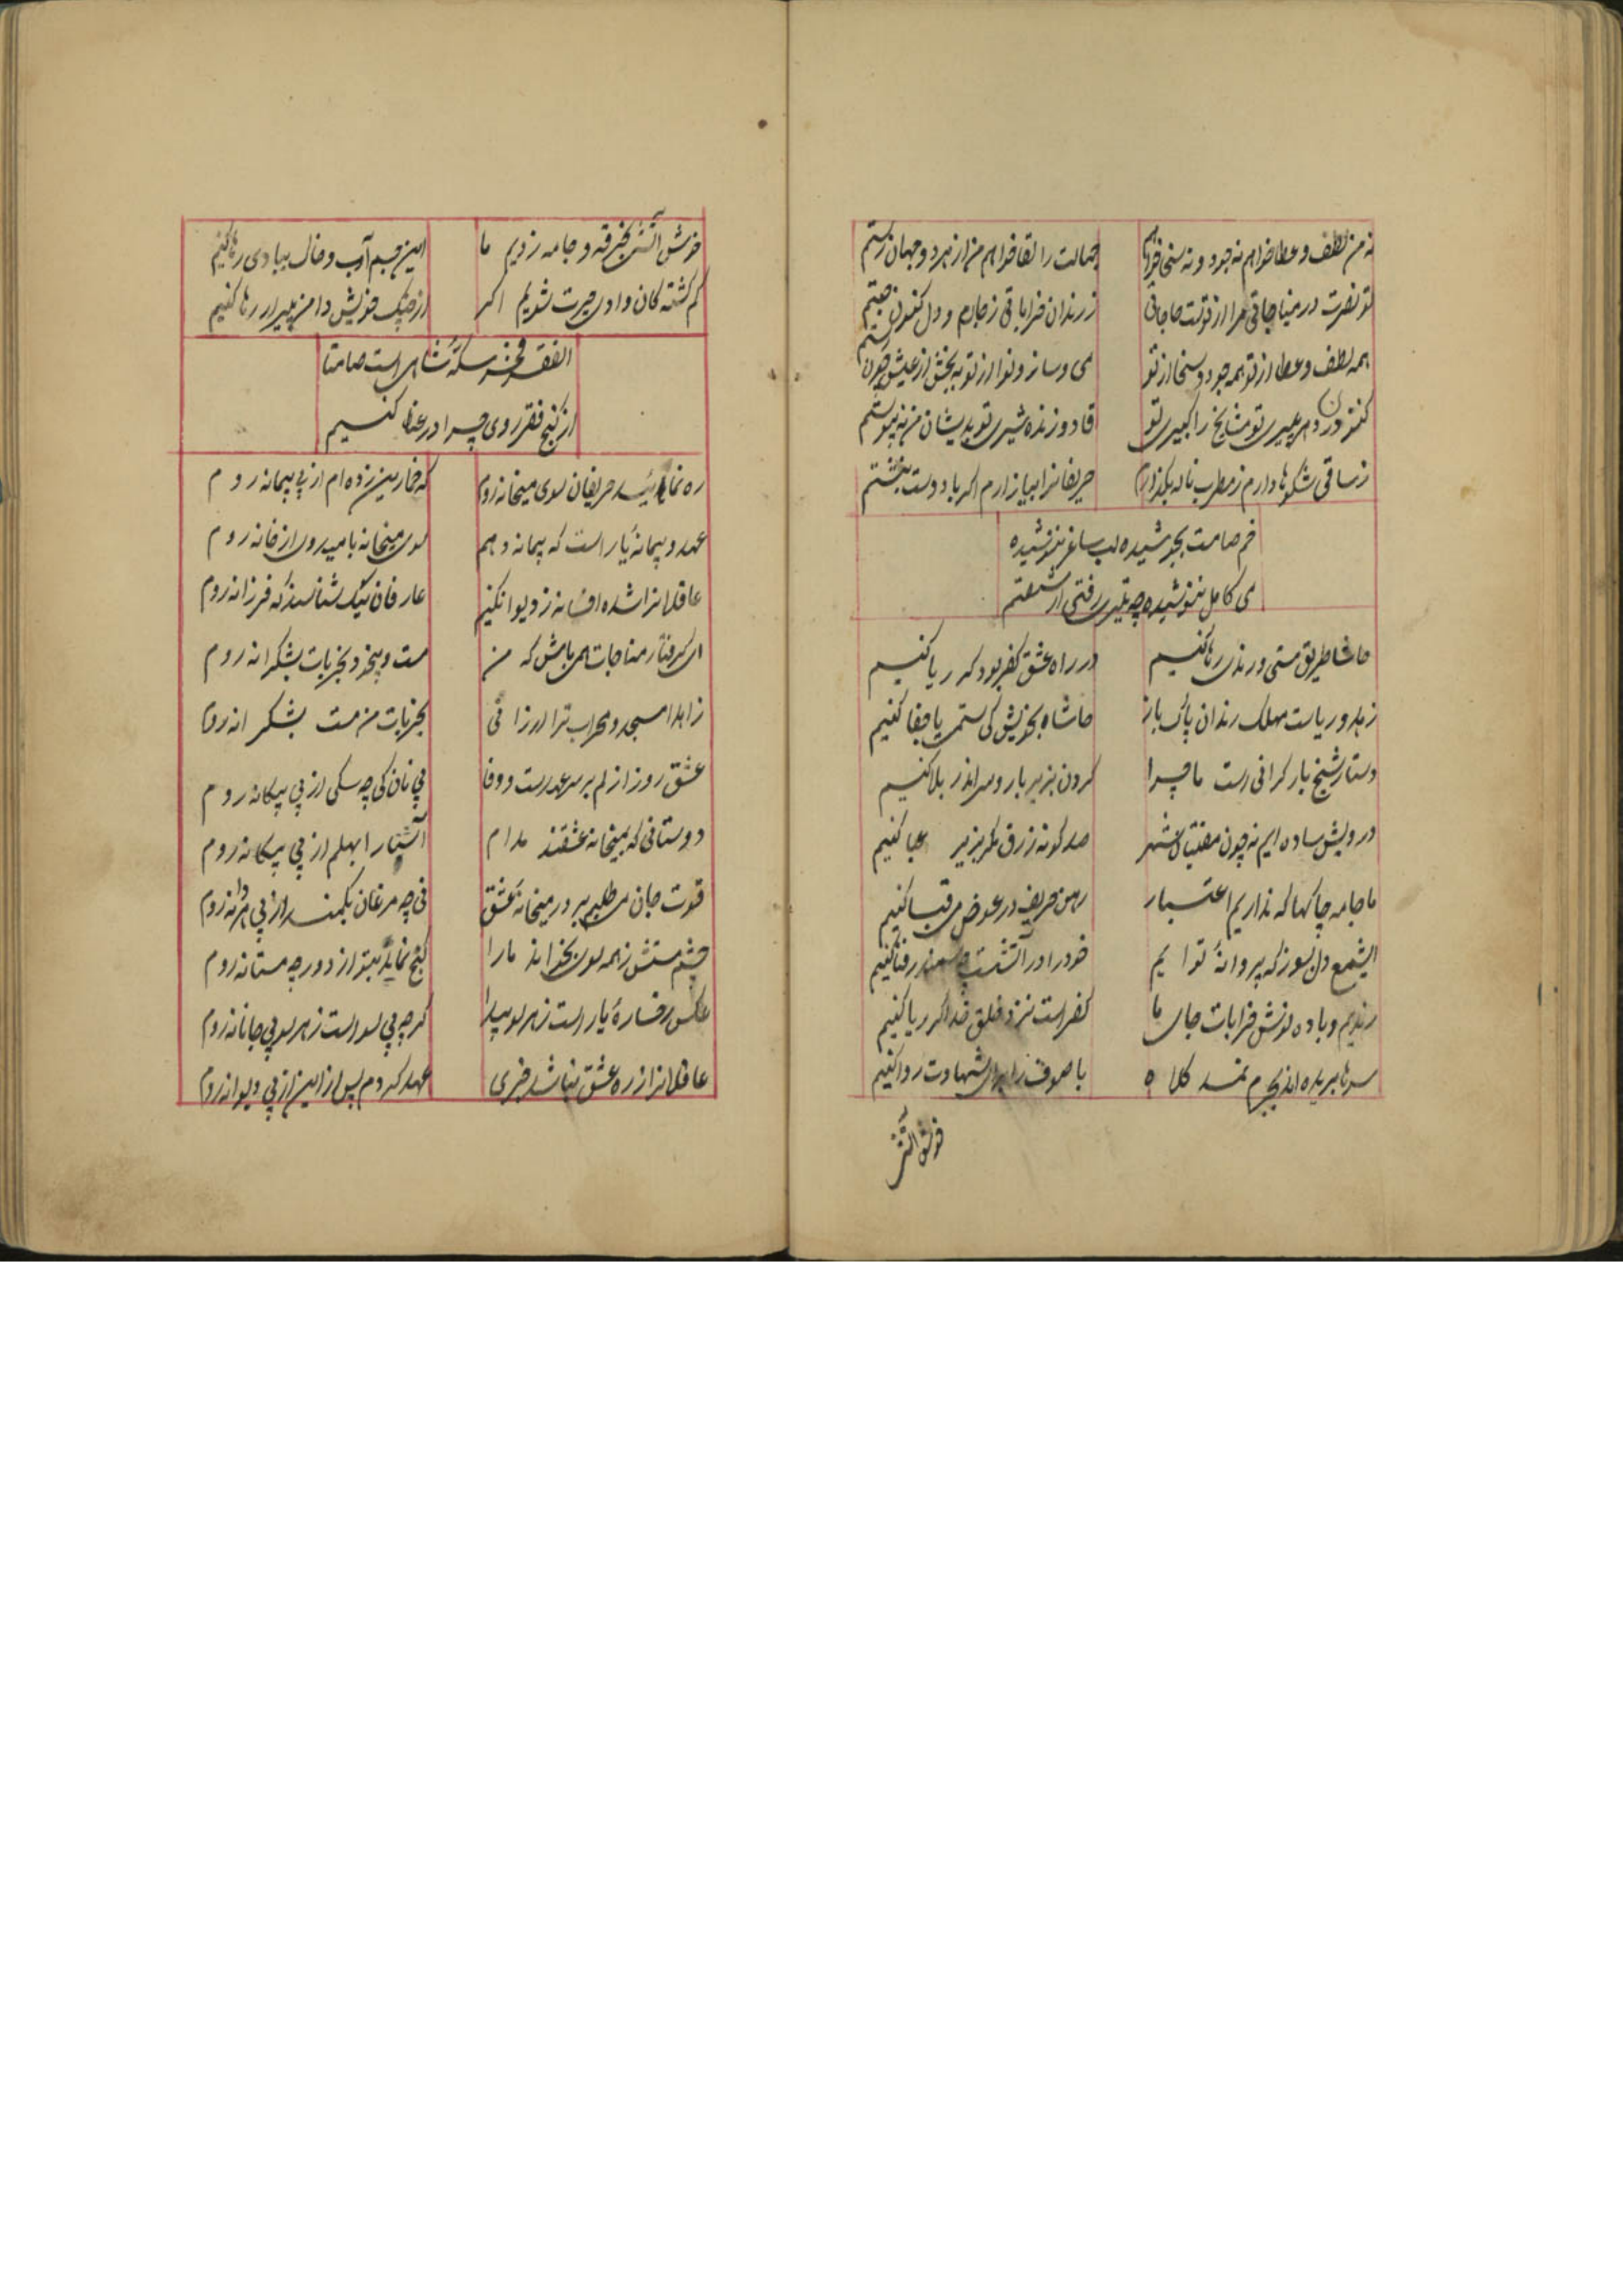 نه من لطف و عطا خواهم نه جود و نه سخا خواهم
جمالت را لقا خواهم من از هر دو جهان رستم
تو نصرت در مناجاتی مرا از تو حاجاتی
ز رندان خراباتی ز جام و دل کنون جستم
همه لطف و عطا از تو همه جود و سخا از تو
می و ساز و نوا از تو به بخش از عیش چون هستم
تو مشایخ را کبیری تو
من نه پیوستم
ز ساقی شکوها دارم ز مطرب ناله بگذارم
حریفانرا بیازارم اگر با دوست بنشستم
خم صامت بجوشیده لب ساغر ننوشیده
می کامل ننوشیده چه رفتی از شستم
حاشا طریق مستی و رندی رها کنیم
در راه عشق کفر بود گر ریا کنیم
زهد و ریاست مهلک رندان پاک باز
حاشا بخویش کی ستم یا جفا کنیم
دستار شیخ بار گرانی است ما چرا
گردن بزیر بار و سر اندر بلا کنیم
درویش ساده ایم نه چون مفتیان شهر
صد گونه زرق مکر بزیر عبا کنیم
ما جامه چاکها که نداریم اعتبار
رهن حریف در عوض می قبا کنیم
ایشمع دل بسوز که پروانهٔ تو ایم
خود را در آتشت چو سمندر فنا کنیم
رندیم و باده نوش خرابات جای ما
کفر است نزد خلق خدا گر ریا کنیم
سرها بریده اند بجرم نمد کلاه
با صوف را برای شهادت روا کنیم
خوش آتش
خوش آتشی بخرقه و جامه زدیم ما
این جسم آب و خاک ببادی رها کنیم
گم گشته گان وادی حیرت شویم اگر
از چنگ خویش دامن پیر ار رها کنیم
الفقر فخر سکهٔ شاهی است صامتا
از کنج فقر روی چرا در غنا کنیم
ره نمائید حریفان سوی میخانه روم
که خمارین زده ام از پی پیمانه روم
عهد و پیمانهٔ یار است که پیمانه دهم
سوی میخانه بامید وی از خانه روم
عاقلانرا شده افسانه ز دیوانگیم
عارفان نیک شناسند که فرزانه روم
ای گرفتار مناجات می باش که من
مست و بیخود بخرابات بشکرانه روم
زاهدا مسجد و محراب ترا ارزانی
بخرابات من مست بشکرانه روم
عشق روز ازلم بر سر عهد است و وفا
پی نان کی چه سگی از پی بیگانه روم
دوستانی که بمیخانه عشقند مدام
آشنا را بهلم از پی بیگانه روم
قوت جان می طلبم بر در میخانهٔ عشق
نی چه مرغان بکمند از پی هر دانه روم
چشم مستش ز همه سوی بخواند ما را
کنج نماید بتو از دور چه مستانه روم
عکس رخسارهٔ یار است ز هر سو پیدا
گرچه بی سو است ز هر سو پی جانانه روم
عاقلانرا ز ره عشق نباشد خبری
عهد کردم پس از این از پی دیوانه روم